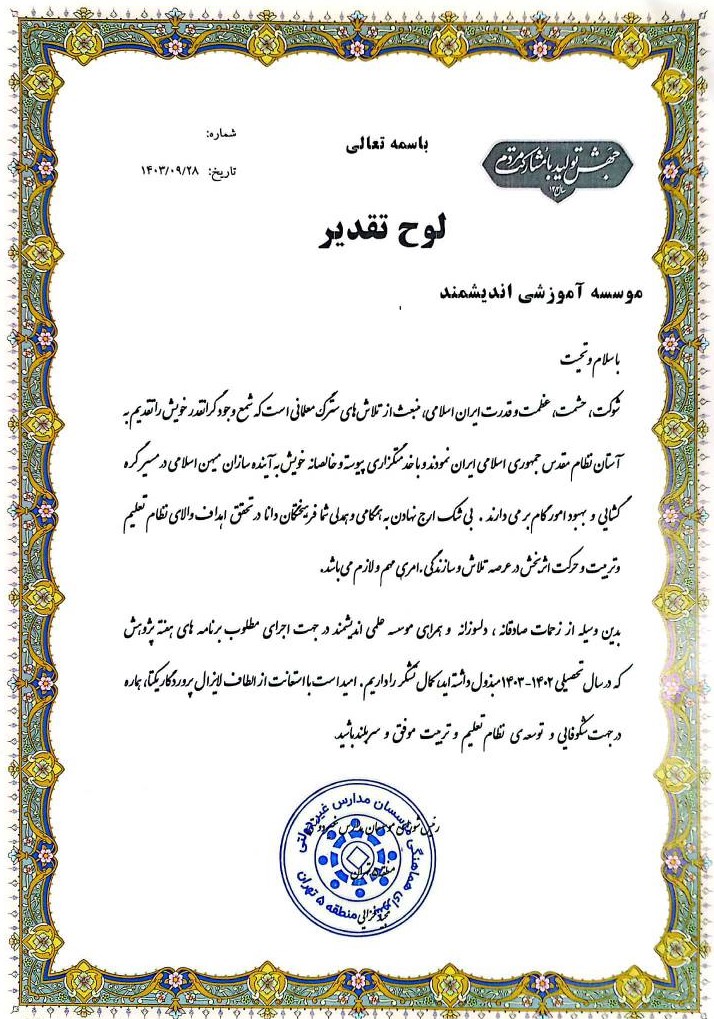 باسمه تعالی
جهش تولید با مشارکت مردم
شماره:
تاریخ: ۱۴۰۳/۰۹/۲۸
لوح تقدیر
موسسه آموزشی اندیشمند
با سلام و تحیت
شوکت، حشمت، عظمت و قدرت ایران اسلامی، منبعث از تلاش های سترگ معلمانی است که شمع وجود گرانقدر خویش را تقدیم به
آستان نظام مقدس جمهوری اسلامی ایران نمودند و با خدمتگزاری پیوسته و خالصانه خویش به آینده سازان میهن اسلامی در مسیر گره
گشایی و بهبود امور گام بر می دارند . بی شک ارج نهادن به همگامی و همدلی شما فرهیختگان دانا در تحقق اهداف والای نظام تعلیم
وتربیت و حرکت اثربخش در عرصه تلاش و سازندگی.امری مهم و لازم می باشد.
بدین وسیله از زحمات صادقانه ، دلسوزانه و همراهی موسسه علمی اندیشمند در جهت اجرای مطلوب برنامه های هفته پژوهش
که در سال تحصیلی ۱۴۰۲-۱۴۰۳ مبذول داشته اید، کمال تشکر را داریم. امید است با استعانت از الطاف لایزال پروردگار یکتا، هماره
در جهت شکوفایی و توسعه ی نظام تعلیم و تربیت موفق و سربلند باشید.
شورای هماهنگی موسسان مدارس غیردولتی
منطقه ۵ تهران